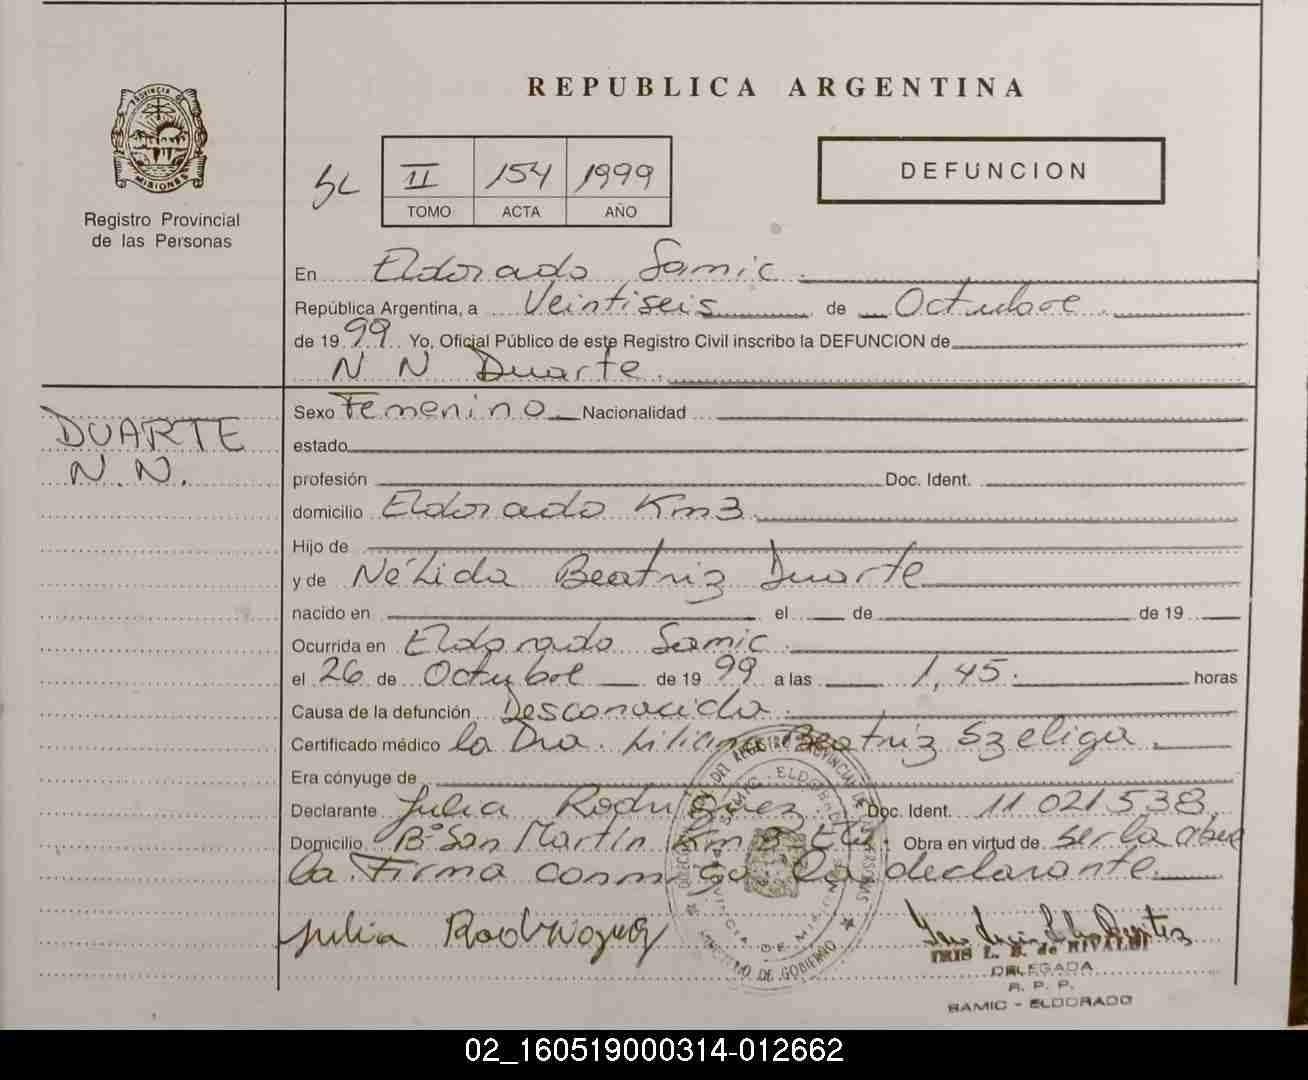 PROVINCIA DE
MISIONES
Registro Provincial
de las Personas
REPUBLICA ARGENTINA
II 154 1999
TOMO ACTA AÑO
DEFUNCION
En Eldorado Samic
República Argentina, a Veintiseis de Octubre
de 1999 Yo, Oficial Público de este Registro Civil inscribo la DEFUNCION de
N N Duarte
DUARTE
N. N.
Sexo Femenino Nacionalidad
estado
profesión Doc. Ident.
domicilio Eldorado Km3
Hijo de
y de Nélida Beatriz Duarte
nacido en el de de 19
Ocurrida en Eldorado Samic
el 26 de Octubre de 1999 a las 1,45 horas
Causa de la defunción Desconocida
Certificado médico la Dra. Liliana Beatriz Szeliga
Era cónyuge de
Declarante Julia Rodriguez Doc. Ident. 11 021 538
Domicilio Bº San Martín Km 3 Obra en virtud de ser la abue
la. Firma conmigo la declarante
Julia Rodriguez
IRIS L. B. de RIVALDI
DELEGADA
R. P. P.
SAMIC - ELDORADO
02_160519000314-012662